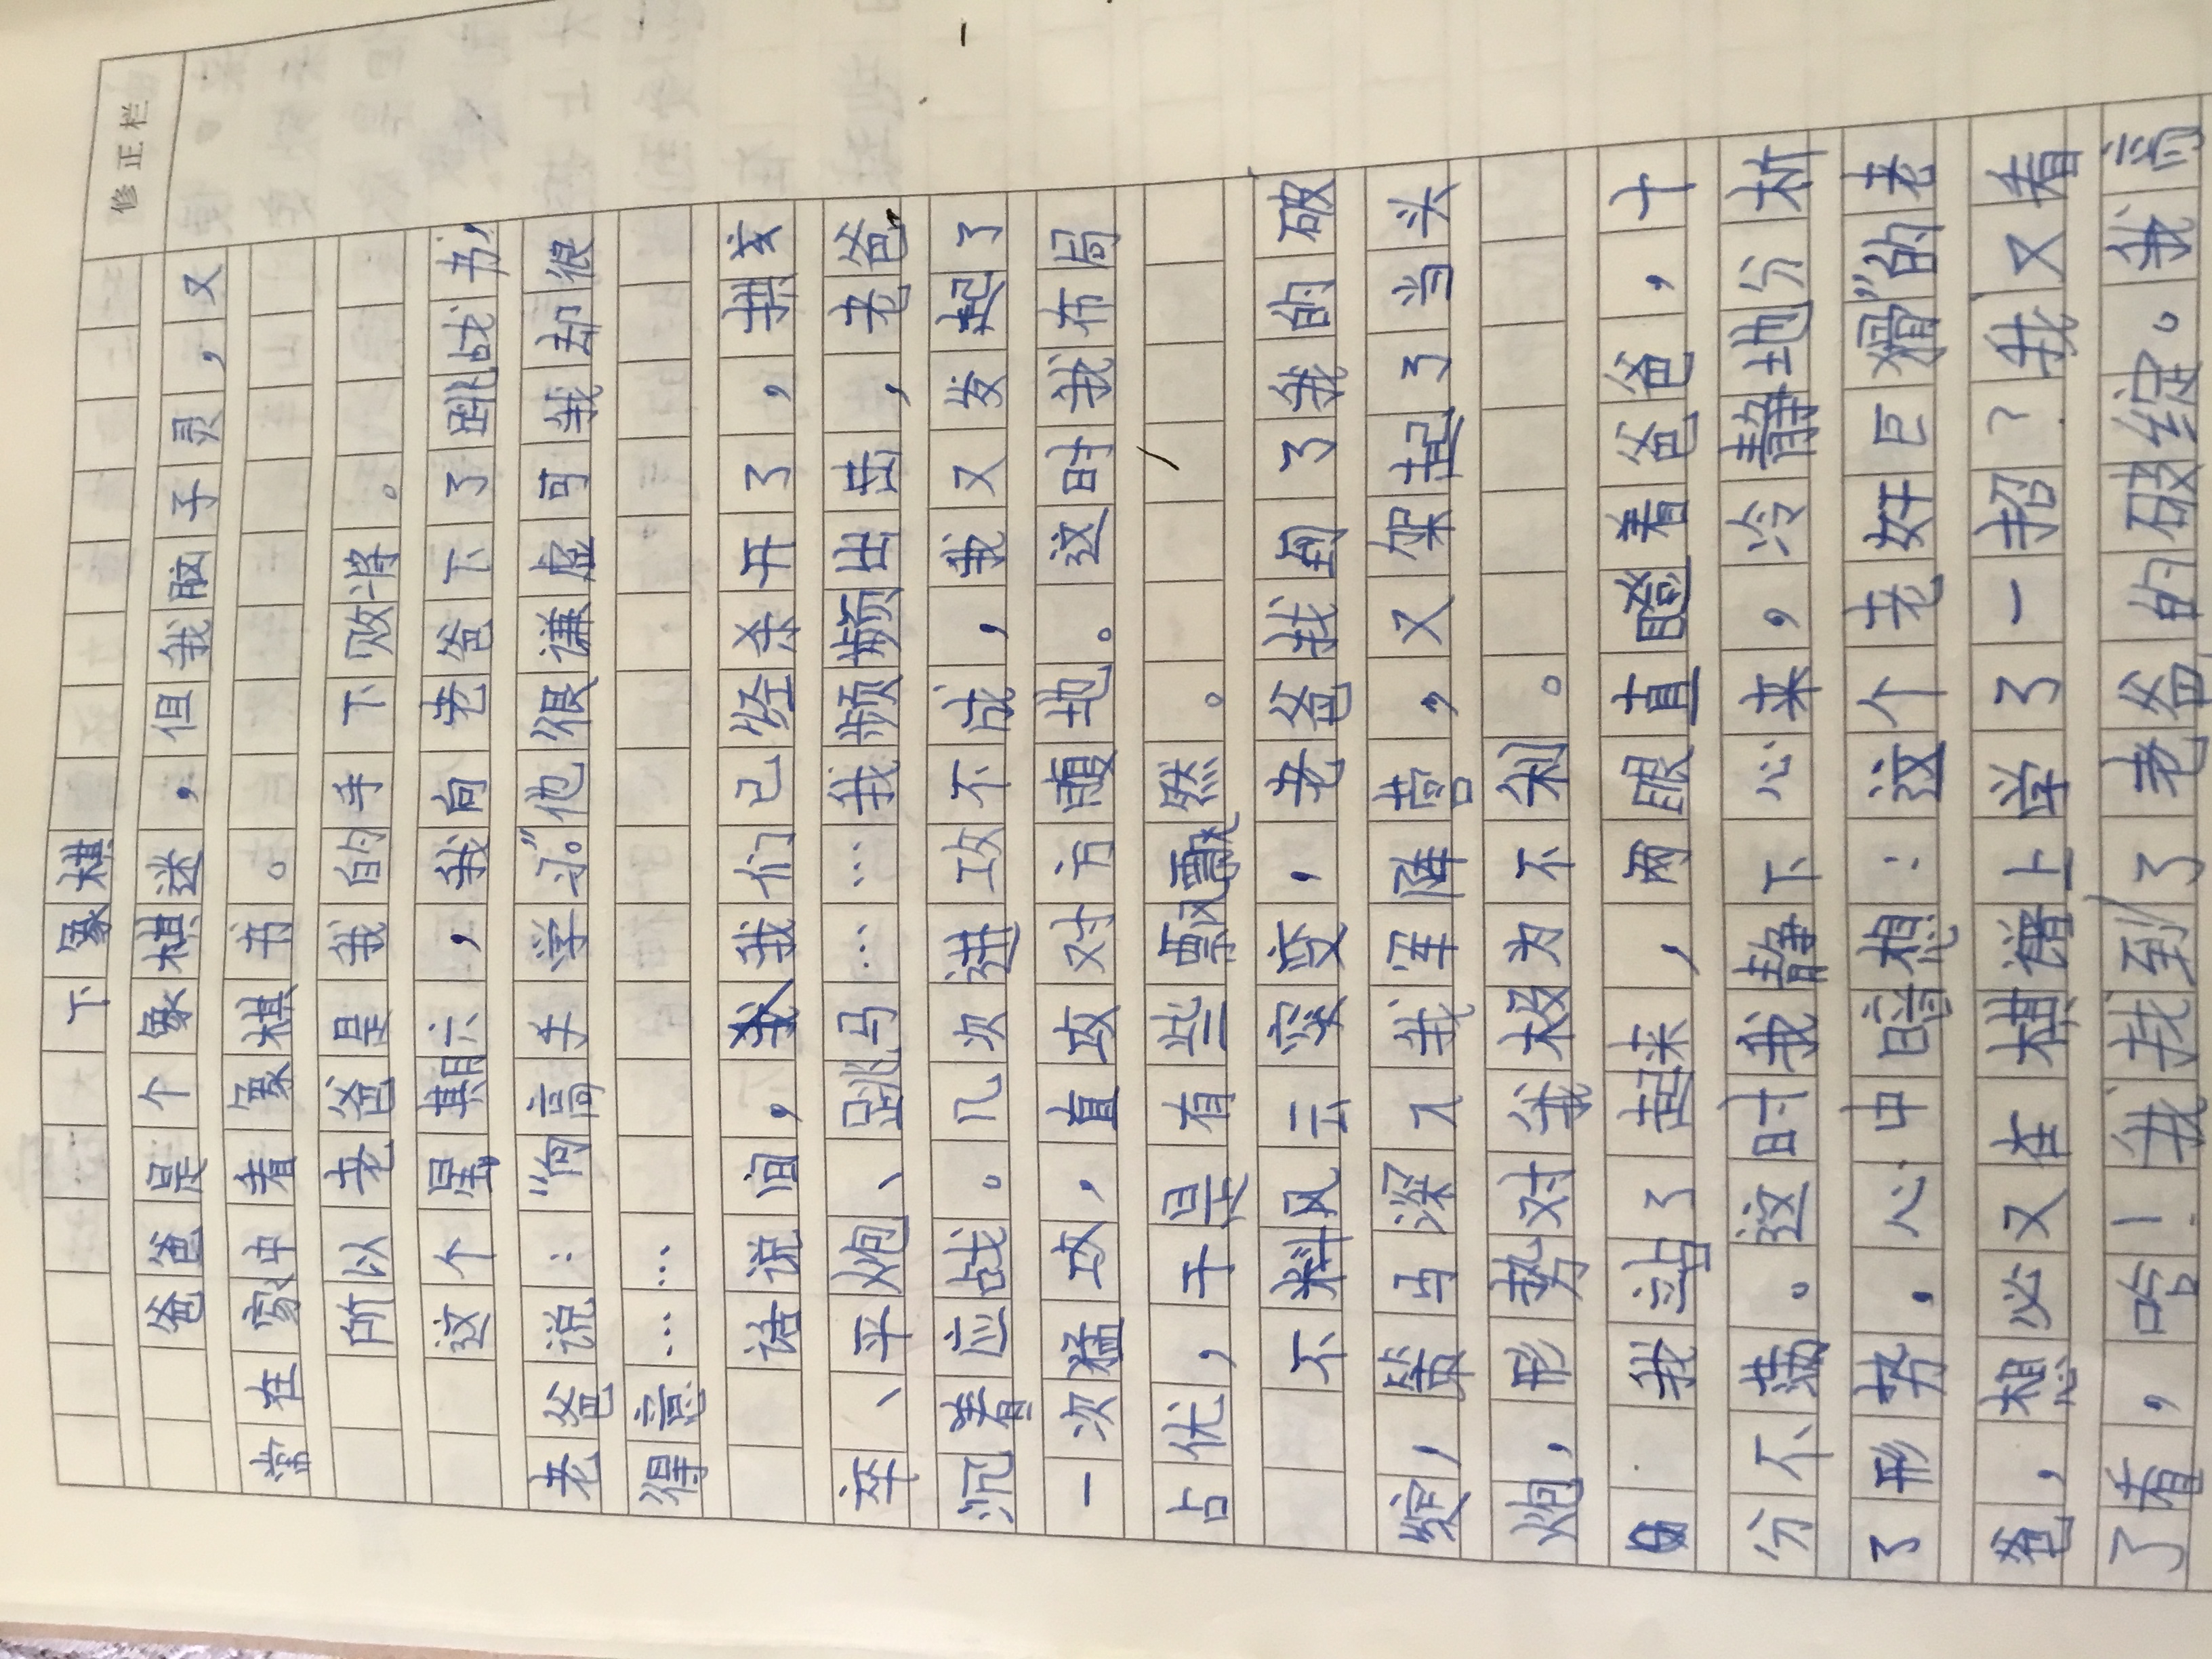 修正栏
下象棋
爸爸是个象棋迷，但我脑子灵，又
常在家中看象棋书。
所以老爸是我的手下败将。
这个星期六，我向老爸下了挑战书，
老爸说：“向高手学习。”他很谦虚可我却很
得意……
话说间，我们已经杀开了，拱
卒、平炮、跳马……我频频出击，老爸
沉着应战。几次进攻不成，我又发起了
一次猛攻，直攻对方腹地。这时我布局
占优，于是有些飘飘然。
不料风云突变，老爸找到了我的破
绽，策马深入我军阵营，又架起了当头
炮，形势对我极为不利。
我站了起来，两眼直瞪着爸爸，十
分不满。这时我静下心来，冷静地分析
了形势，心中暗想：这个老奸巨猾”的老
爸，想必又在棋谱上学了一招？我又看
了看，哈！我找到了老爸的破绽。我